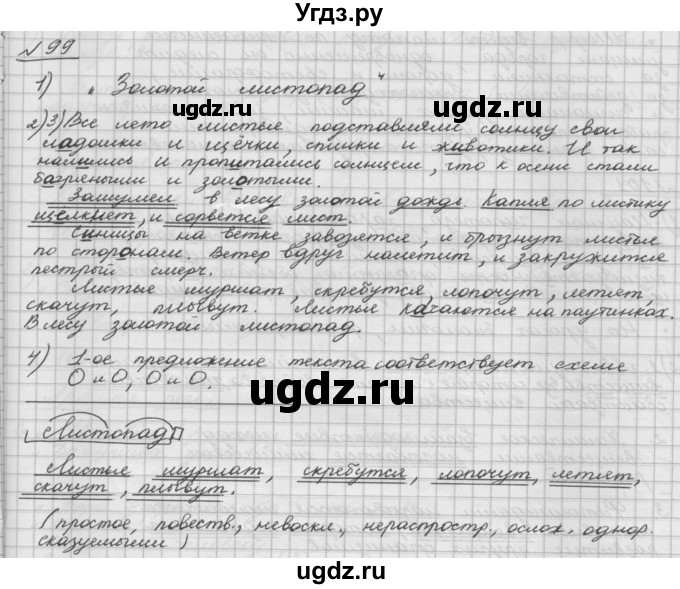 Угдз.ру
№ 99
1) „Золотой листопад"
2)3) Все лето листья подставляли солнцу свои
ладошки и щёчки, спинки и животики. И так
налились и пропитались солнцем, что к осени стали
багреными и золотыми.
Зашумел в лесу золотой дождь. Капля по листику
щелкнет, и сорвется лист.
Синицы на ветке завозятся, и брызнут листья
по сторонам. Ветер вдруг налетит, и закружится
пестрый смерч.
Листья шуршат, скребутся, лопочут, летят,
скачут, плывут. Листья качаются на паутинках.
В лесу золотой листопад.
4) 1-ое предложение текста соответствует схеме
О и О, О и О.
Листопад
Листья шуршат, скребутся, лопочут, летят,
скачут, плывут.
(простое, повеств., невоскл., нераспростр., ослож. однор.
сказуемыми)
ugdz.ru
ugdz.ru
ugdz.ru
ugdz.ru
ugdz.ru
ugdz.ru
ugdz.ru
ugdz.ru
ugdz.ru